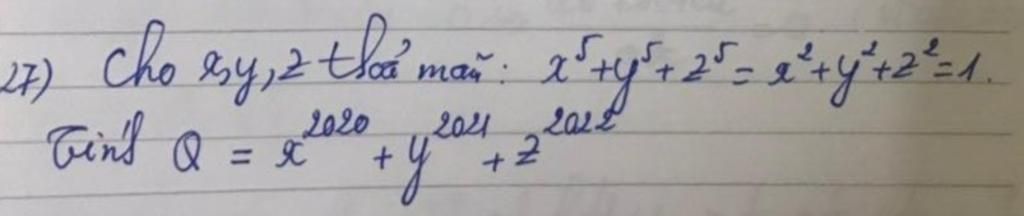 27) Cho x, y, z thoả mãn: x⁵+y⁵+z⁵ = x²+y²+z²=1.
Tính Q = x²⁰²⁰ + y²⁰²¹ + z²⁰²²